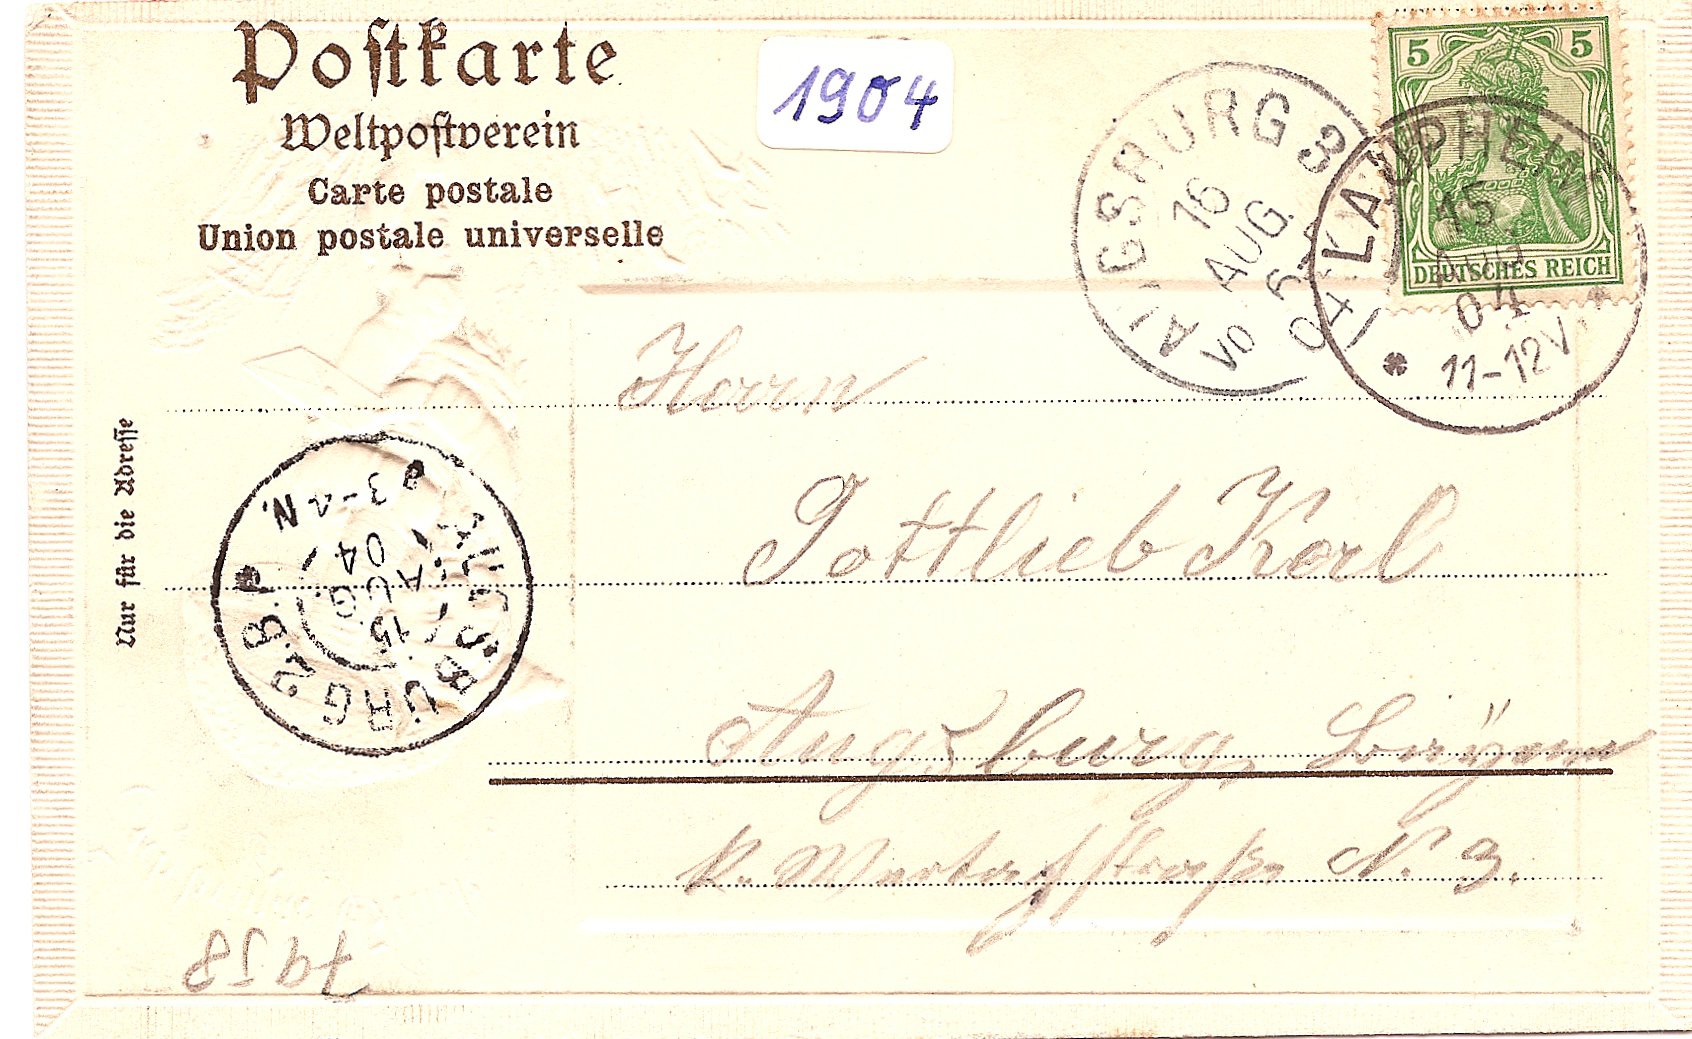 Postkarte
Weltpostverein
Carte postale
Union postale universelle
1904
5 5
DEUTSCHES REICH
AUGSBURG 3
16
AUG.
VO 6-
04
LAUPHEIM
15
AUG
04
11-12V.
Nur für die Adresse
AUGSBURG 2 B.P.
15
AUG.
04
3-4 N.
Herrn
Gottlieb Kerl
Augsburg,
N. 9.